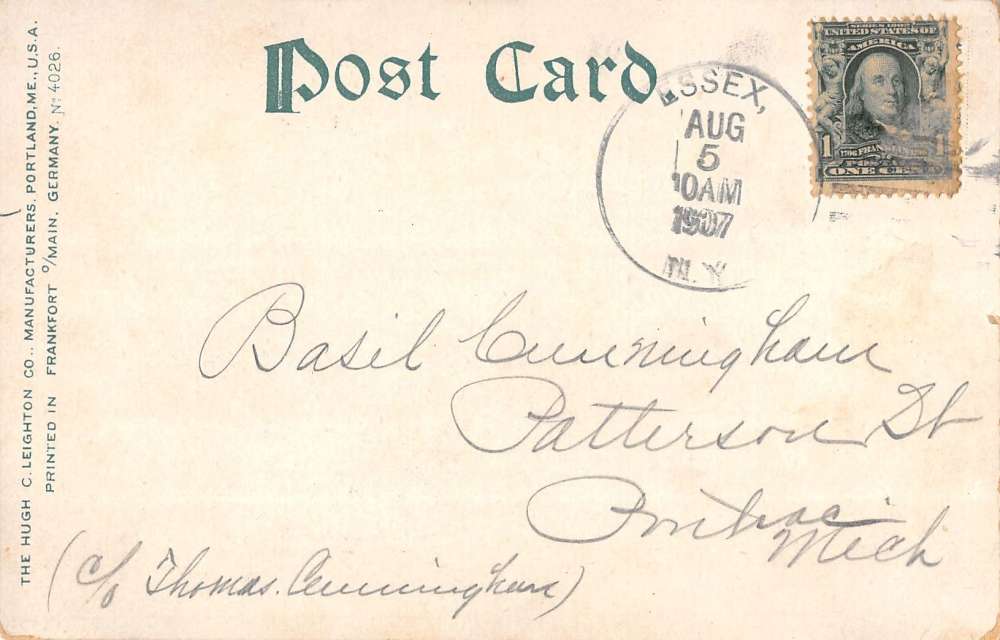 Post Card
SERIES 1902
UNITED STATES OF
AMERICA
FRANKLIN
1
ONE CENT
ESSEX,
AUG
5
10AM
1907
N.Y.
Basil Cunningham
Patterson St
Pontiac
Mich
(c/o Thomas. Cunningham)
THE HUGH C. LEIGHTON CO., MANUFACTURERS, PORTLAND, ME., U.S.A.
PRINTED IN FRANKFORT o/MAIN, GERMANY. No 4026.